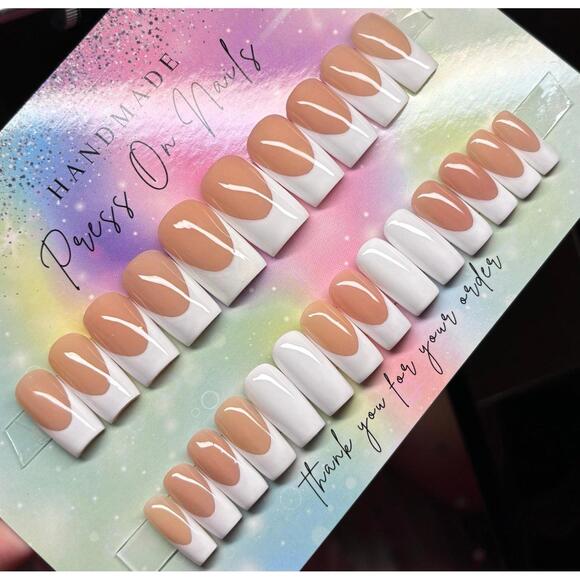 HANDMADE
Press On Nails
thank you for your order